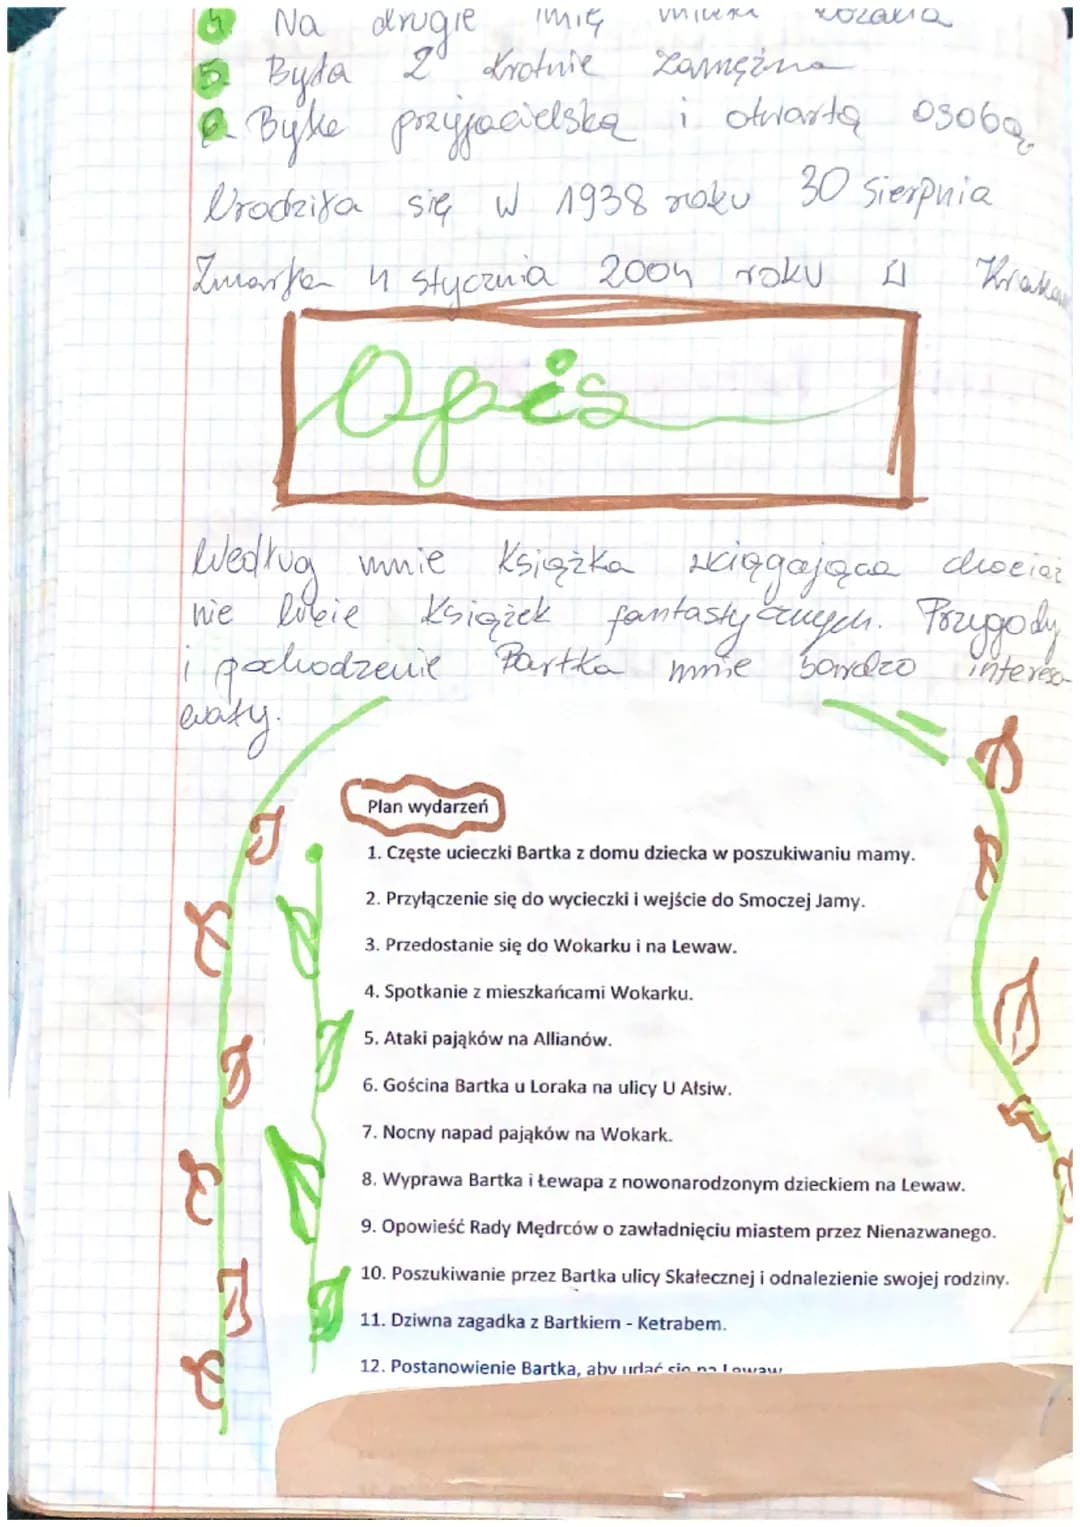 4. Na drugie imię miała Rozalia
5. Była 2 krotnie zamężna
6. Była przyjacielską i otwartą osobą.
Urodziła się w 1938 roku 30 Sierpnia
Zmarła 4 stycznia 2004 roku
Opis
Według mnie Książka wciągająca chociaż
nie lubie Książek fantastycznych. Przygody
i pochodzenie Bartka mnie bardzo intereso-
wały.
Plan wydarzeń
1. Częste ucieczki Bartka z domu dziecka w poszukiwaniu mamy.
2. Przyłączenie się do wycieczki i wejście do Smoczej Jamy.
3. Przedostanie się do Wokarku i na Lewaw.
4. Spotkanie z mieszkańcami Wokarku.
5. Ataki pająków na Allianów.
6. Gościna Bartka u Loraka na ulicy U Ałsiw.
7. Nocny napad pająków na Wokark.
8. Wyprawa Bartka i Łewapa z nowonarodzonym dzieckiem na Lewaw.
9. Opowieść Rady Mędrców o zawładnięciu miastem przez Nienazwanego.
10. Poszukiwanie przez Bartka ulicy Skałecznej i odnalezienie swojej rodziny.
11. Dziwna zagadka z Bartkiem - Ketrabem.
12. Postanowienie Bartka, aby udać się na Lewaw